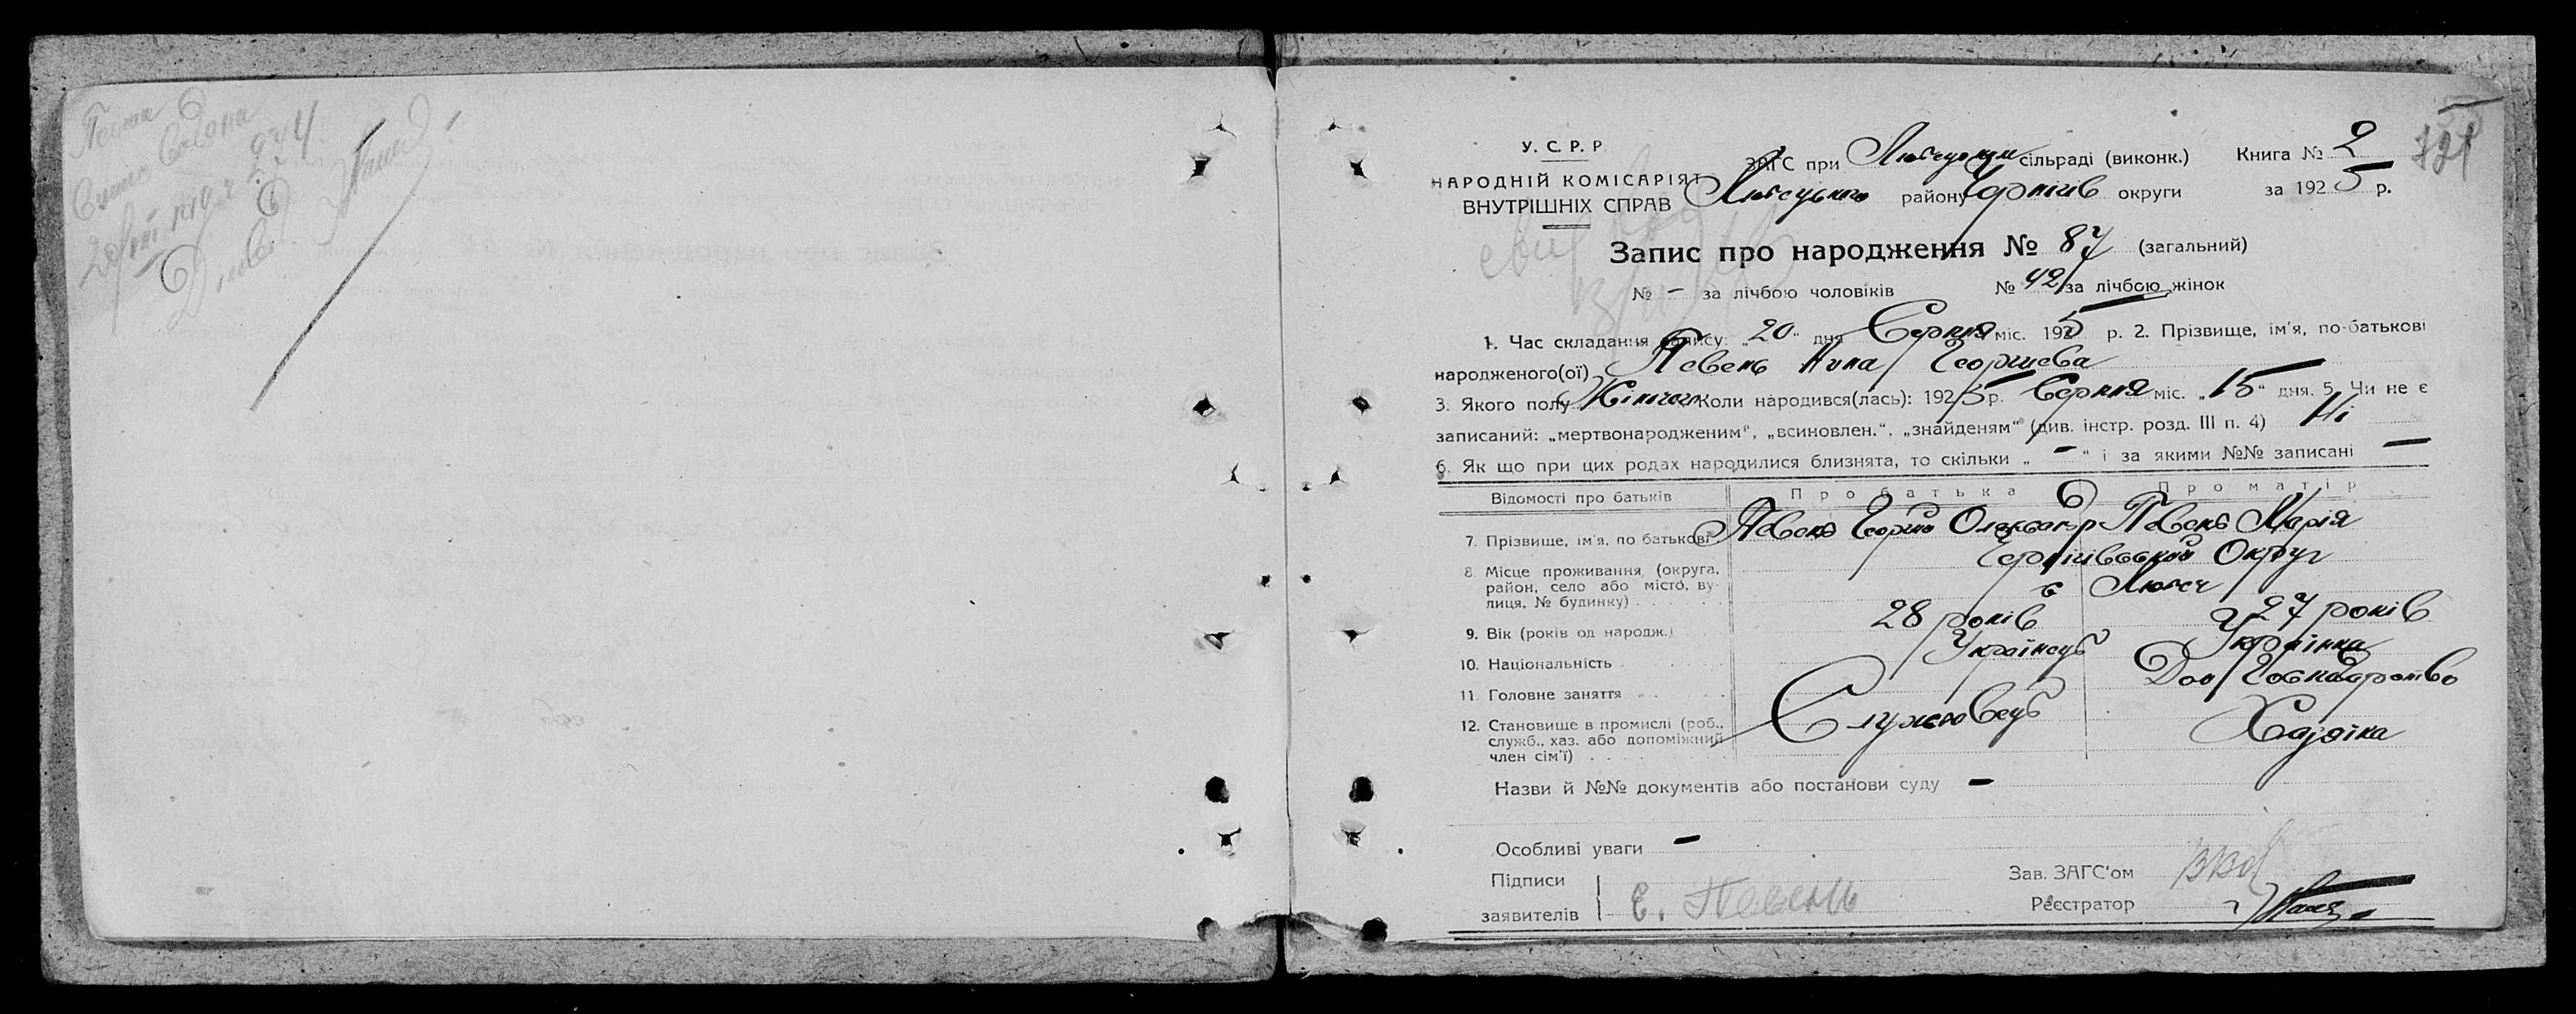 У. С. Р. Р.
НАРОДНІЙ КОМІСАРІЯТ
ВНУТРІШНІХ СПРАВ
ЗАГС при Любецькім сільраді (виконк.) Книга № 2
Любецького району Чернігів округи за 1925 р.
Запис про народження № 87 (загальний)
№ - за лічбою чоловіків № 42 за лічбою жінок
1. Час складання запису: „20" дня Серпня міс. 1925 р. 2. Прізвище, ім'я, по-батькові
народженого(ої) Певень Нина Георгиева
3. Якого полу Жіночого Коли народився(лась): 1925 р. Серпня міс. „15" дня. 5. Чи не є
записаний: „мертвонародженим", „всиновлен.", „знайденям" (див. інстр. розд. III п. 4) Ні
6. Як що при цих родах народилися близнята, то скільки „-" і за якими №№ записані -
Відомості про батьків Про батька Про матір
7. Прізвище, ім'я, по батькові Певень Георгий Олександр Певень Марія
8. Місце проживання (округа, район, село або місто, вулиця, № будинку) Чернігівськой Округ
Любеч
9. Вік (років од народж.) 28 років 27 років
10. Національність Українець Українка
11. Головне заняття Дом Госпадарство
12. Становище в промислі (роб., служб., хаз. або допоміжний член сім'ї) Служовець Хазяїка
Назви й №№ документів або постанови суду -
Особливі уваги -
Підписи
заявителів Є. Певень
Зав. ЗАГС'ом
Реєстратор